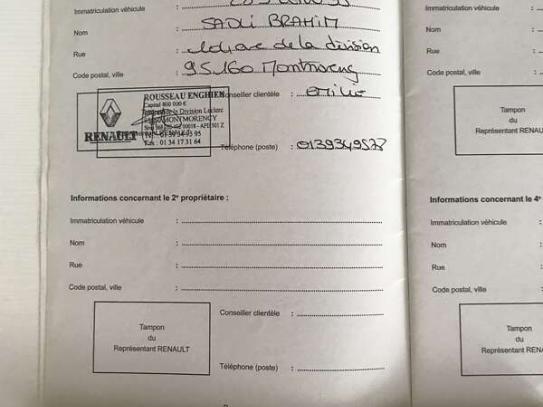 Immatriculation véhicule :
Nom : SADLI BRAHIM
Rue : de la division
Code postal, ville : 95160 Montmorency
RENAULT
ROUSSEAU ENGHIEN
Capital 400 000 €
de la Division Leclerc
MONTMORENCY
Fax : 01 34 17 31 64
Conseiller clientèle :
Téléphone (poste) : 0139349577
Informations concernant le 2e propriétaire :
Immatriculation véhicule :
Nom :
Rue :
Code postal, ville :
Tampon
du
Représentant RENAULT
Conseiller clientèle :
Téléphone (poste) :
Immatriculation véhicule :
Nom :
Rue :
Code postal, ville :
Tampon
du
Représentant RENAU
Informations concernant le 4e
Immatriculation véhicule :
Nom :
Rue :
Code postal, ville :
Tampon
du
Représentant RENA